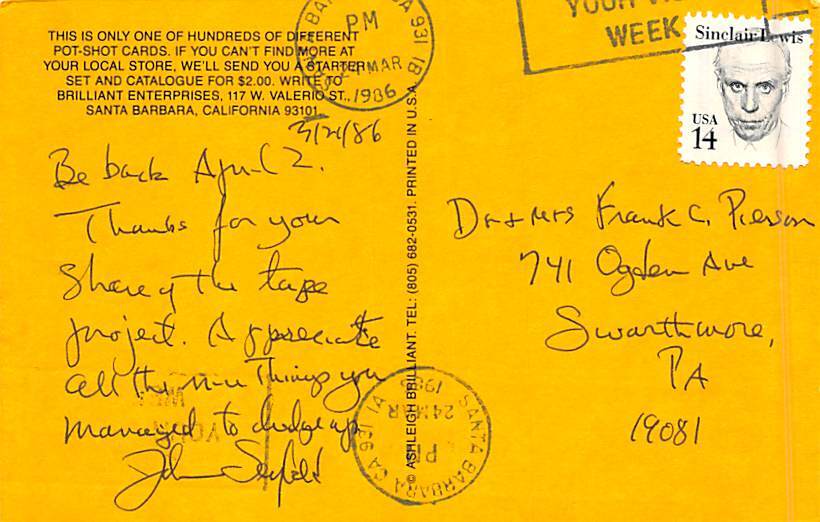 THIS IS ONLY ONE OF HUNDREDS OF DIFFERENT
POT-SHOT CARDS. IF YOU CAN'T FIND MORE AT
YOUR LOCAL STORE, WE'LL SEND YOU A STARTER
SET AND CATALOGUE FOR $2.00. WRITE TO
BRILLIANT ENTERPRISES, 117 W. VALERIO ST.,
SANTA BARBARA, CALIFORNIA 93101
PM
24 MAR
1986
CA 931
WEEK
Sinclair Lewis
USA
14
Be back April 2.
Thanks for your
share of the tape
project. Appreciate
all the new things you
managed to dredge up
John
© ASHLEIGH BRILLIANT. TEL: (805) 682-0531. PRINTED IN U.S.A.
Dr + Mrs Frank C. Pierson
741 Ogden Ave
Swarthmore,
PA
19081
SANTA BARBARA CA 931
PM
24 MAR
1986